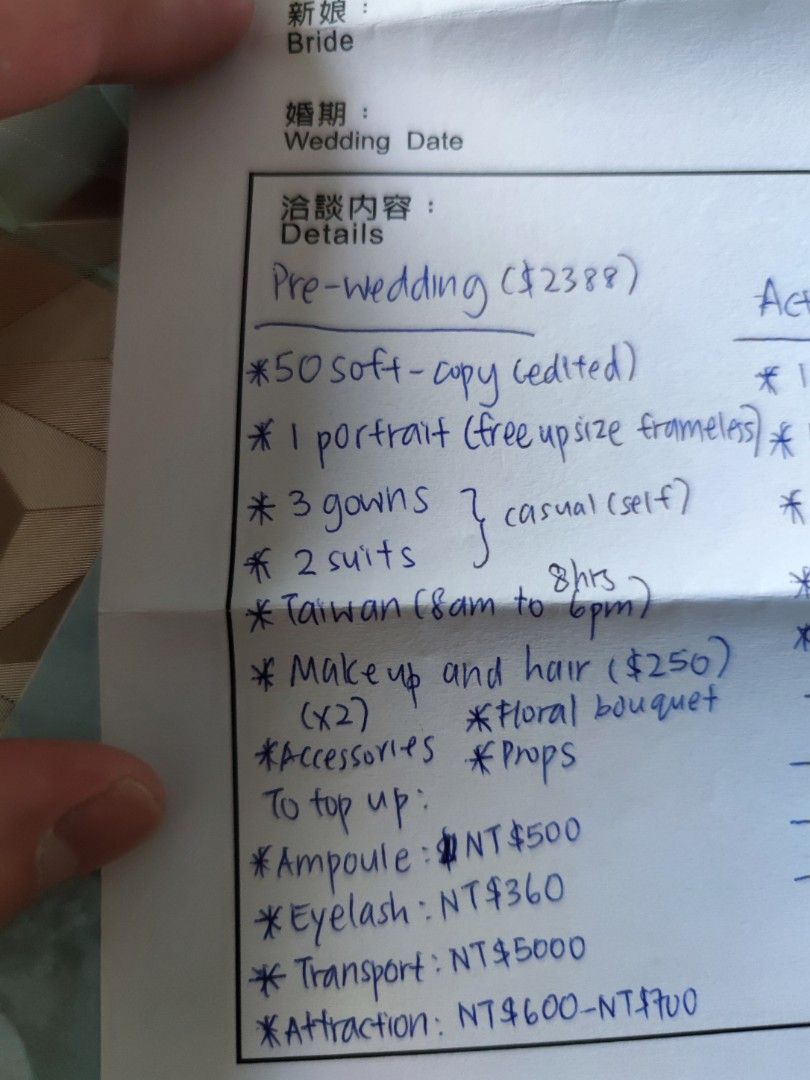 新娘：
Bride
婚期：
Wedding Date
洽談内容：
Details
Pre-wedding ($2388)
*50 soft-copy (edited)
* 1 portrait (free upsize frameless)
* 3 gowns } casual (self)
* 2 suits
8hrs
* Taiwan (8am to 6pm)
* Makeup and hair ($250)
(x2) *Floral bouquet
*Accessories *Props
To top up:
*Ampoule: NT$500
*Eyelash: NT$360
* Transport: NT$5000
*Attraction: NT$600-NT$700
Act
* 1
*
*
*
*